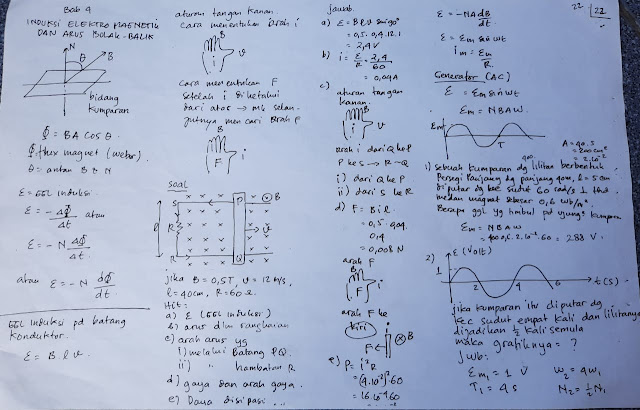 Bab 4
INDUKSI ELEKTROMAGNETIK
DAN ARUS BOLAK-BALIK
N
θ
B
bidang
kumparan
Φ = BA cos θ
Φ = flux magnet (weber)
θ = antar B & N
ε = GGL Induksi
ε = -ΔΦ/Δt atau
ε = -N ΔΦ/Δt
atau ε = -N dΦ/dt
GGL Induksi pd batang
Konduktor.
ε = B.l.v.
aturan tangan kanan.
cara menentukan arah i
B
i
v
cara menentukan F
setelah i diketahui
dari atas →
jutnya mencari arah F
B
F
i
soal
P
B
S
R
v
l
R
Q
jika B = 0,5T, v = 12 m/s,
l = 40cm, R = 60 Ω.
Hit:
a) ε (GGL induksi)
b) arus dlm rangkaian
c) arah arus yg
i) melalui batang PQ.
ii) " hambatan R
d) gaya dan arah gaya.
e) Daya disipasi ...
jawab.
a) ε = B l v sin 90°
= 0,5 . 0,4 . 12 . 1
= 2,4 V
b) i = ε/R = 2,4/60
= 0,04A
c) aturan tangan
kanan.
B
i
v
Arah i dari Q ke P
P ke S → R → Q
i) dari Q ke P
ii) dari S ke R
d) F = B i l.
= 0,5 . 0,04 .
0,4
= 0,008 N
arah F
B
F
i
arah F ke
kiri
F
i
B
e) P = i²R
= (4.10⁻²)².60
= 16.10⁻⁴.60
22
22
ε = -NAdB/dt.
ε = εm sin wt
im = εm/R.
Generator (AC)
ε = εm sin wt
εm = NBAW.
εm
T
A = 40.5
= 200 cm²
= 2.10⁻²
400
1) sebuah kumparan dg lilitan berbentuk
Persegi Panjang dg panjang 40cm, l = 5 cm
diputar dg kec sudut 60 rad/s
medan magnet sebesar 0,6 wb/m².
Berapa ggl yg timbul pd ujung² kumparan
εm = NBAW
= 400.0,6.2.10⁻².60 = 288 V.
2)
ε (Volt)
1
2
4
6
t (s)
jika kumparan itu diputar dg
kec sudut empat kali dan lilitannya
dijadikan ½ kali semula
maka grafiknya = ?
Jwb:
εm1 = 1 V
w2 = 4w1
T1 = 4 s
N2 = ½ N1